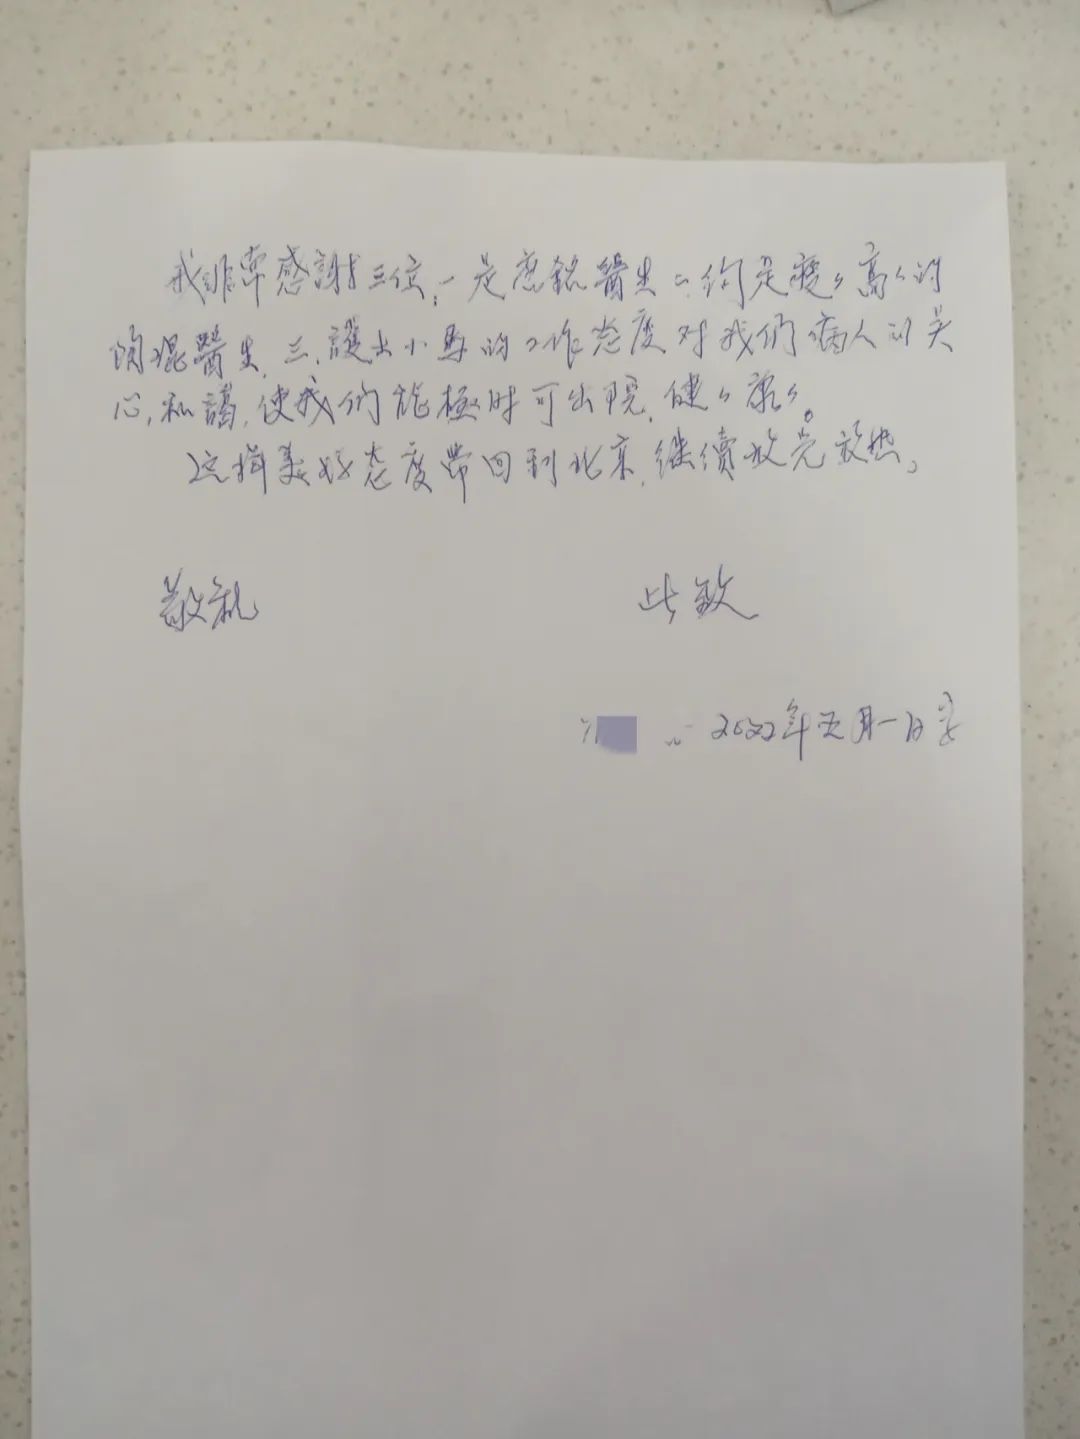 我非常感謝三位,一是唐銘醫生二、約是瘦々高々的
醫生,三、護士小馬的工作态度对我們病人的关
心,和謁,使我們能極时可出院,健々康々。
这样美好态度带回到北京,继續放光放热,
敬礼 此致
2022年五月一日字